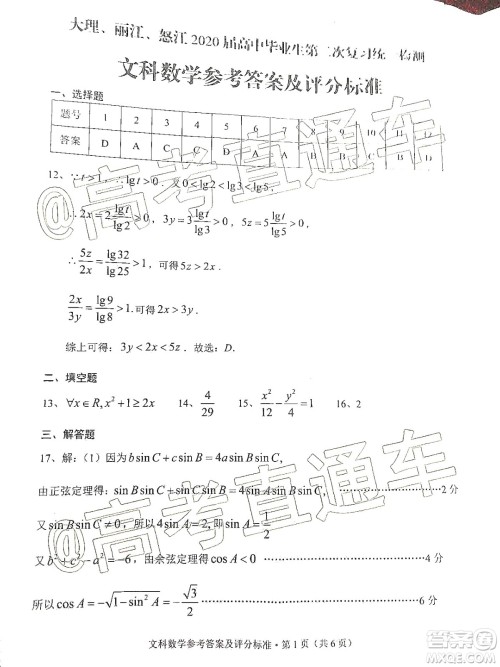 大理、丽江、怒江2020届高中毕业生第二次复习统一检测
文科数学参考答案及评分标准
一、选择题
题号 1 2 3 4 5 6 7 8 9 10 11 12
答案 D A C A
12、∵t>1，∴lgt>0．又0<lg2<lg3<lg5
∴2x=lgt/(lg2/2)>0，3y=lgt/(lg3/3)>0，5z=lgt/(lg5/5)>0
∴5z/2x=lg32/lg25>1，可得5z>2x．
2x/3y=lg9/lg8>1，可得2x>3y．
综上可得：3y<2x<5z．故选D．
二、填空题
13、∀x∈R,x²+1≥2x 14、4/29 15、x²/12-y²/4=1 16、2
三、解答题
17、解：（1）因为b sin C+c sin B=4a sin B sin C
由正弦定理得：sin B sin C+sin C sin B=4sin A sin B sin C ……2分
又sin B sin C≠0，所以4sin A=2，即sin A=1/2
又b²+c²-a²=-6，由余弦定理可得cos A<0 ……4分
所以cos A=-√(1-sin²A)=-√3/2 ……6分
文科数学参考答案及评分标准·第1页（共6页）
@高考直通车
@高考直通车